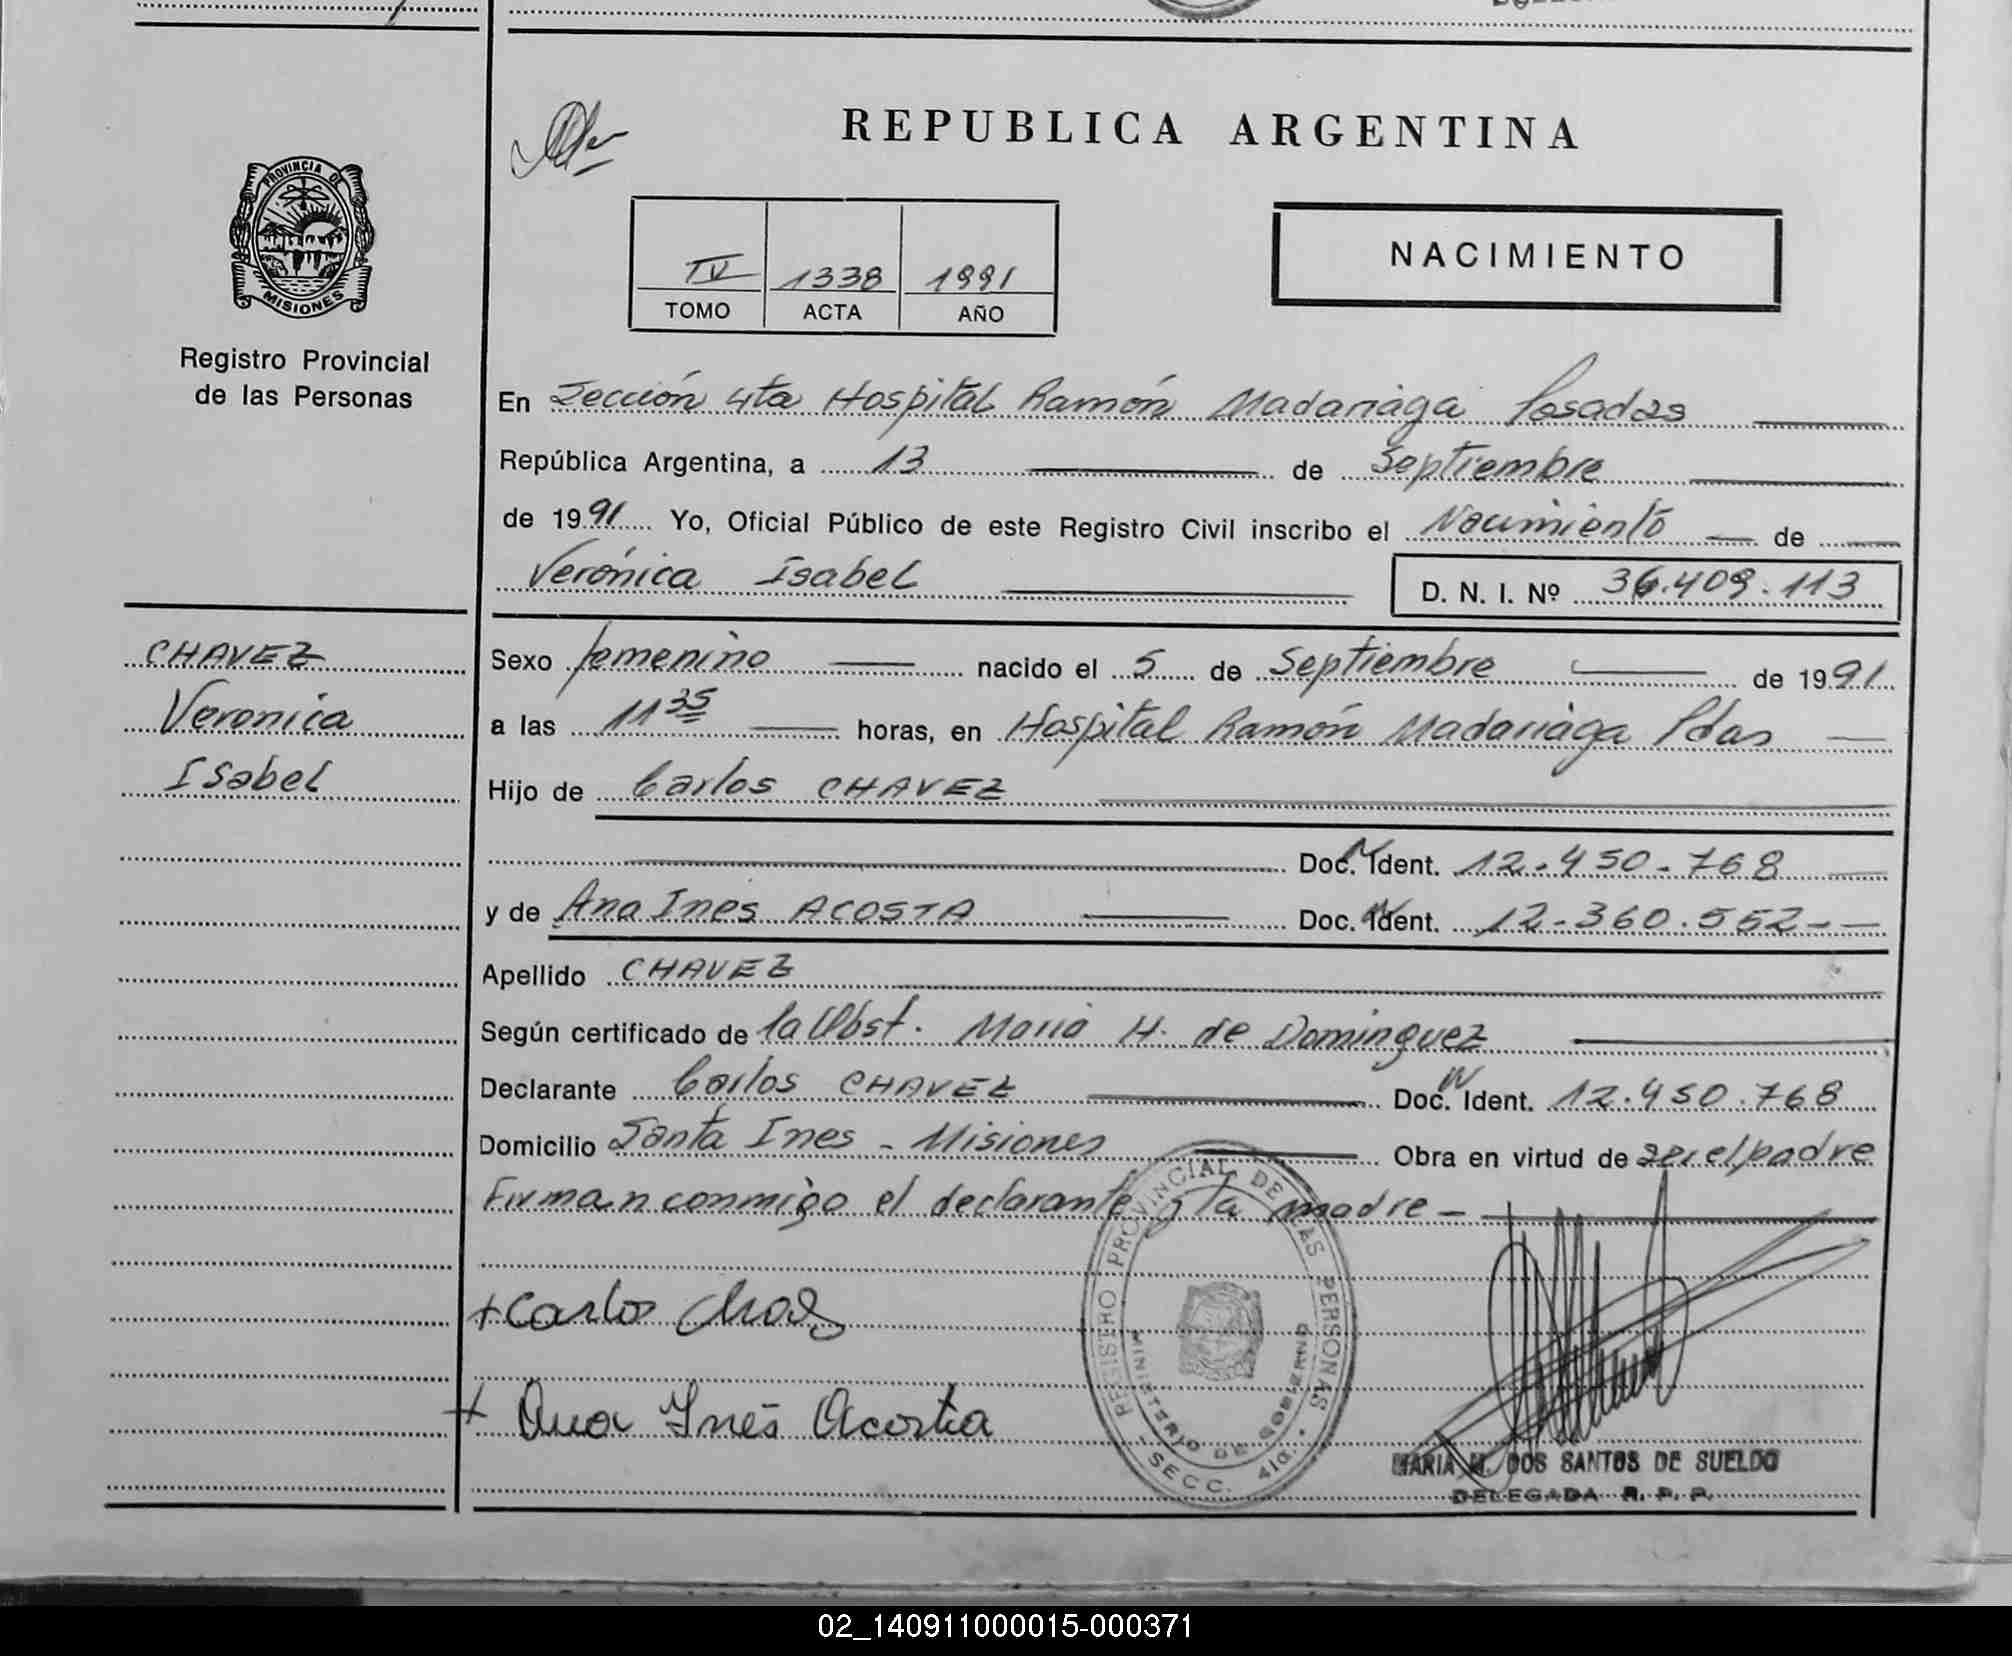 REPUBLICA ARGENTINA
PROVINCIA DE
MISIONES
Registro Provincial
de las Personas
IV 1338 1991
TOMO ACTA AÑO
NACIMIENTO
En Sección 4ta Hospital Ramón Madariaga Posadas
República Argentina, a 13 de Septiembre
de 1991 Yo, Oficial Público de este Registro Civil inscribo el Nacimiento de
Verónica Isabel D. N. I. Nº 36.409.113
CHAVEZ
Veronica
Isabel
Sexo femenino nacido el 5 de Septiembre de 1991
a las 11 35 horas, en Hospital Ramón Madariaga Pdas
Hijo de Carlos CHAVEZ
Doc. Ident. 12.450.768
y de Ana Ines ACOSTA Doc. Ident. 12.360.552
Apellido CHAVEZ
Según certificado de la Obst. Maria H. de Dominguez
Declarante Carlos CHAVEZ Doc. Ident. 12.450.768
Domicilio Santa Ines - Misiones Obra en virtud de ser el padre
Firman conmigo el declarante y la madre -
REGISTRO PROVINCIAL DE LAS PERSONAS
MINISTERIO DE GOBIERNO
SECC. 4ta.
+ Carlos
+ Ana Inés Acosta
MARIA M. DOS SANTOS DE SUELDO
DELEGADA R. P. P.
02_140911000015-000371